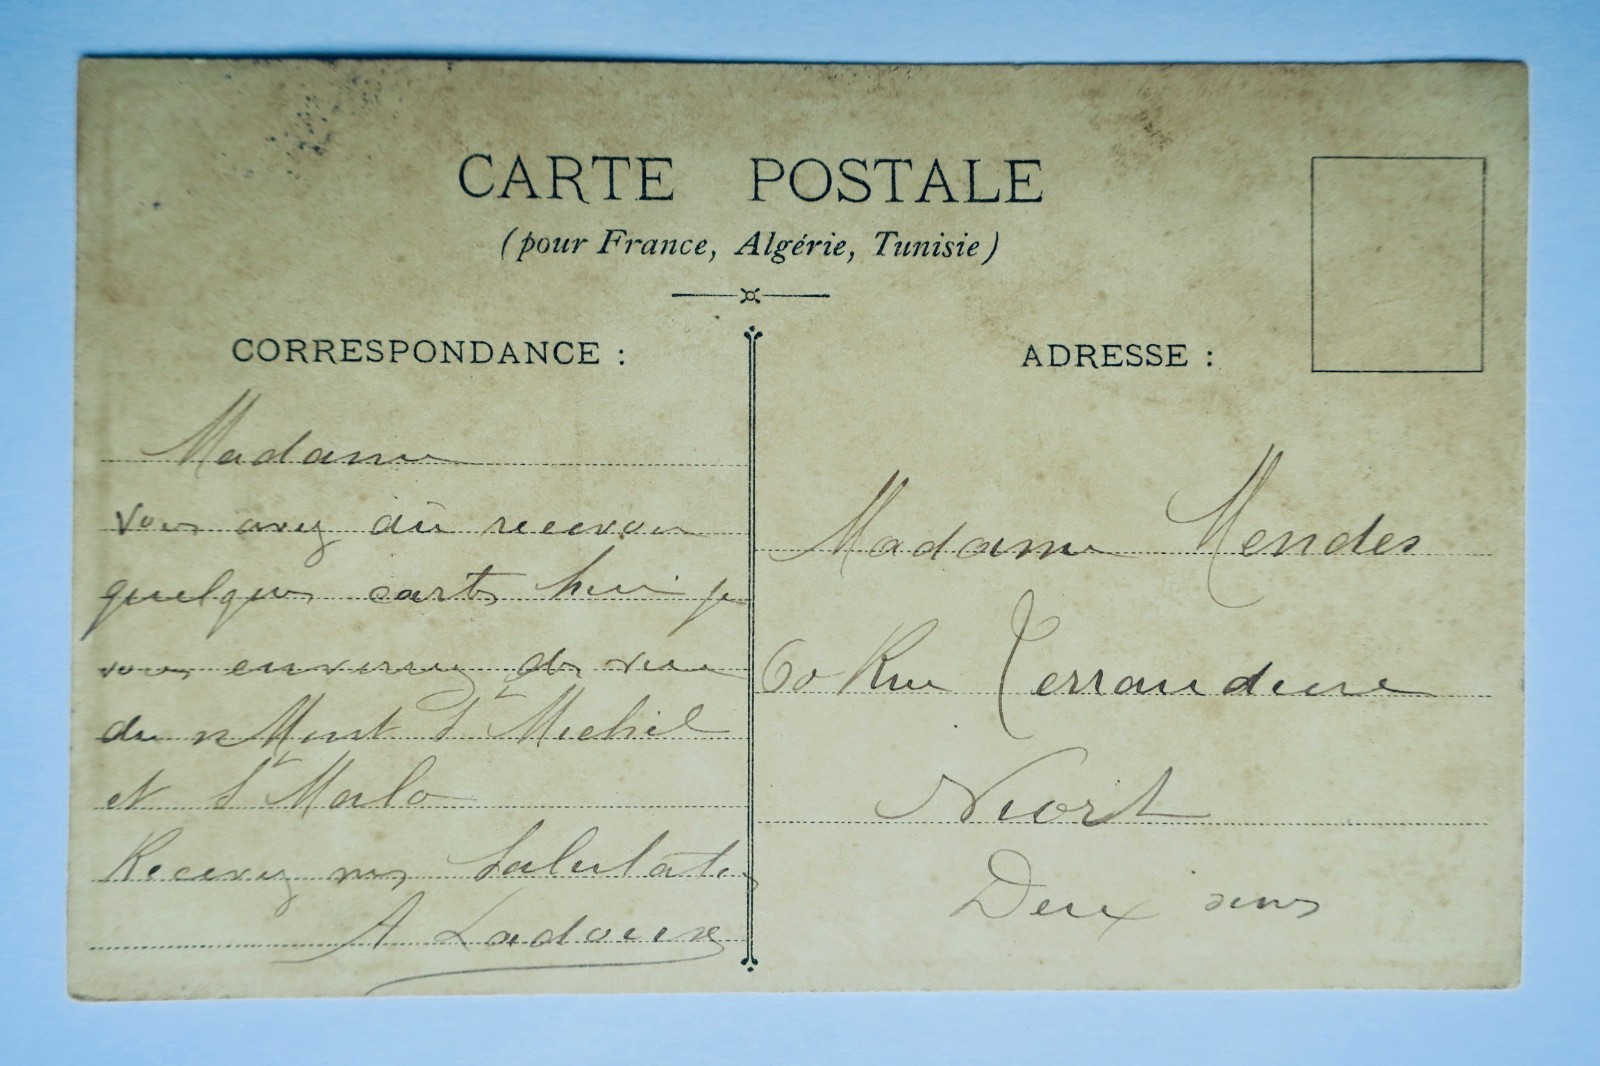 CARTE POSTALE
(pour France, Algérie, Tunisie)
CORRESPONDANCE :
Madame
Vous avez dû recevoir
quelques cartes hier je
vous enverrez des vue
du Mont St Michel
et St Malo
Recevez nos Salutats
A Ladouxe
ADRESSE :
Madame Mendes
60 Rue Terraudiere
Niort
Deux sevres